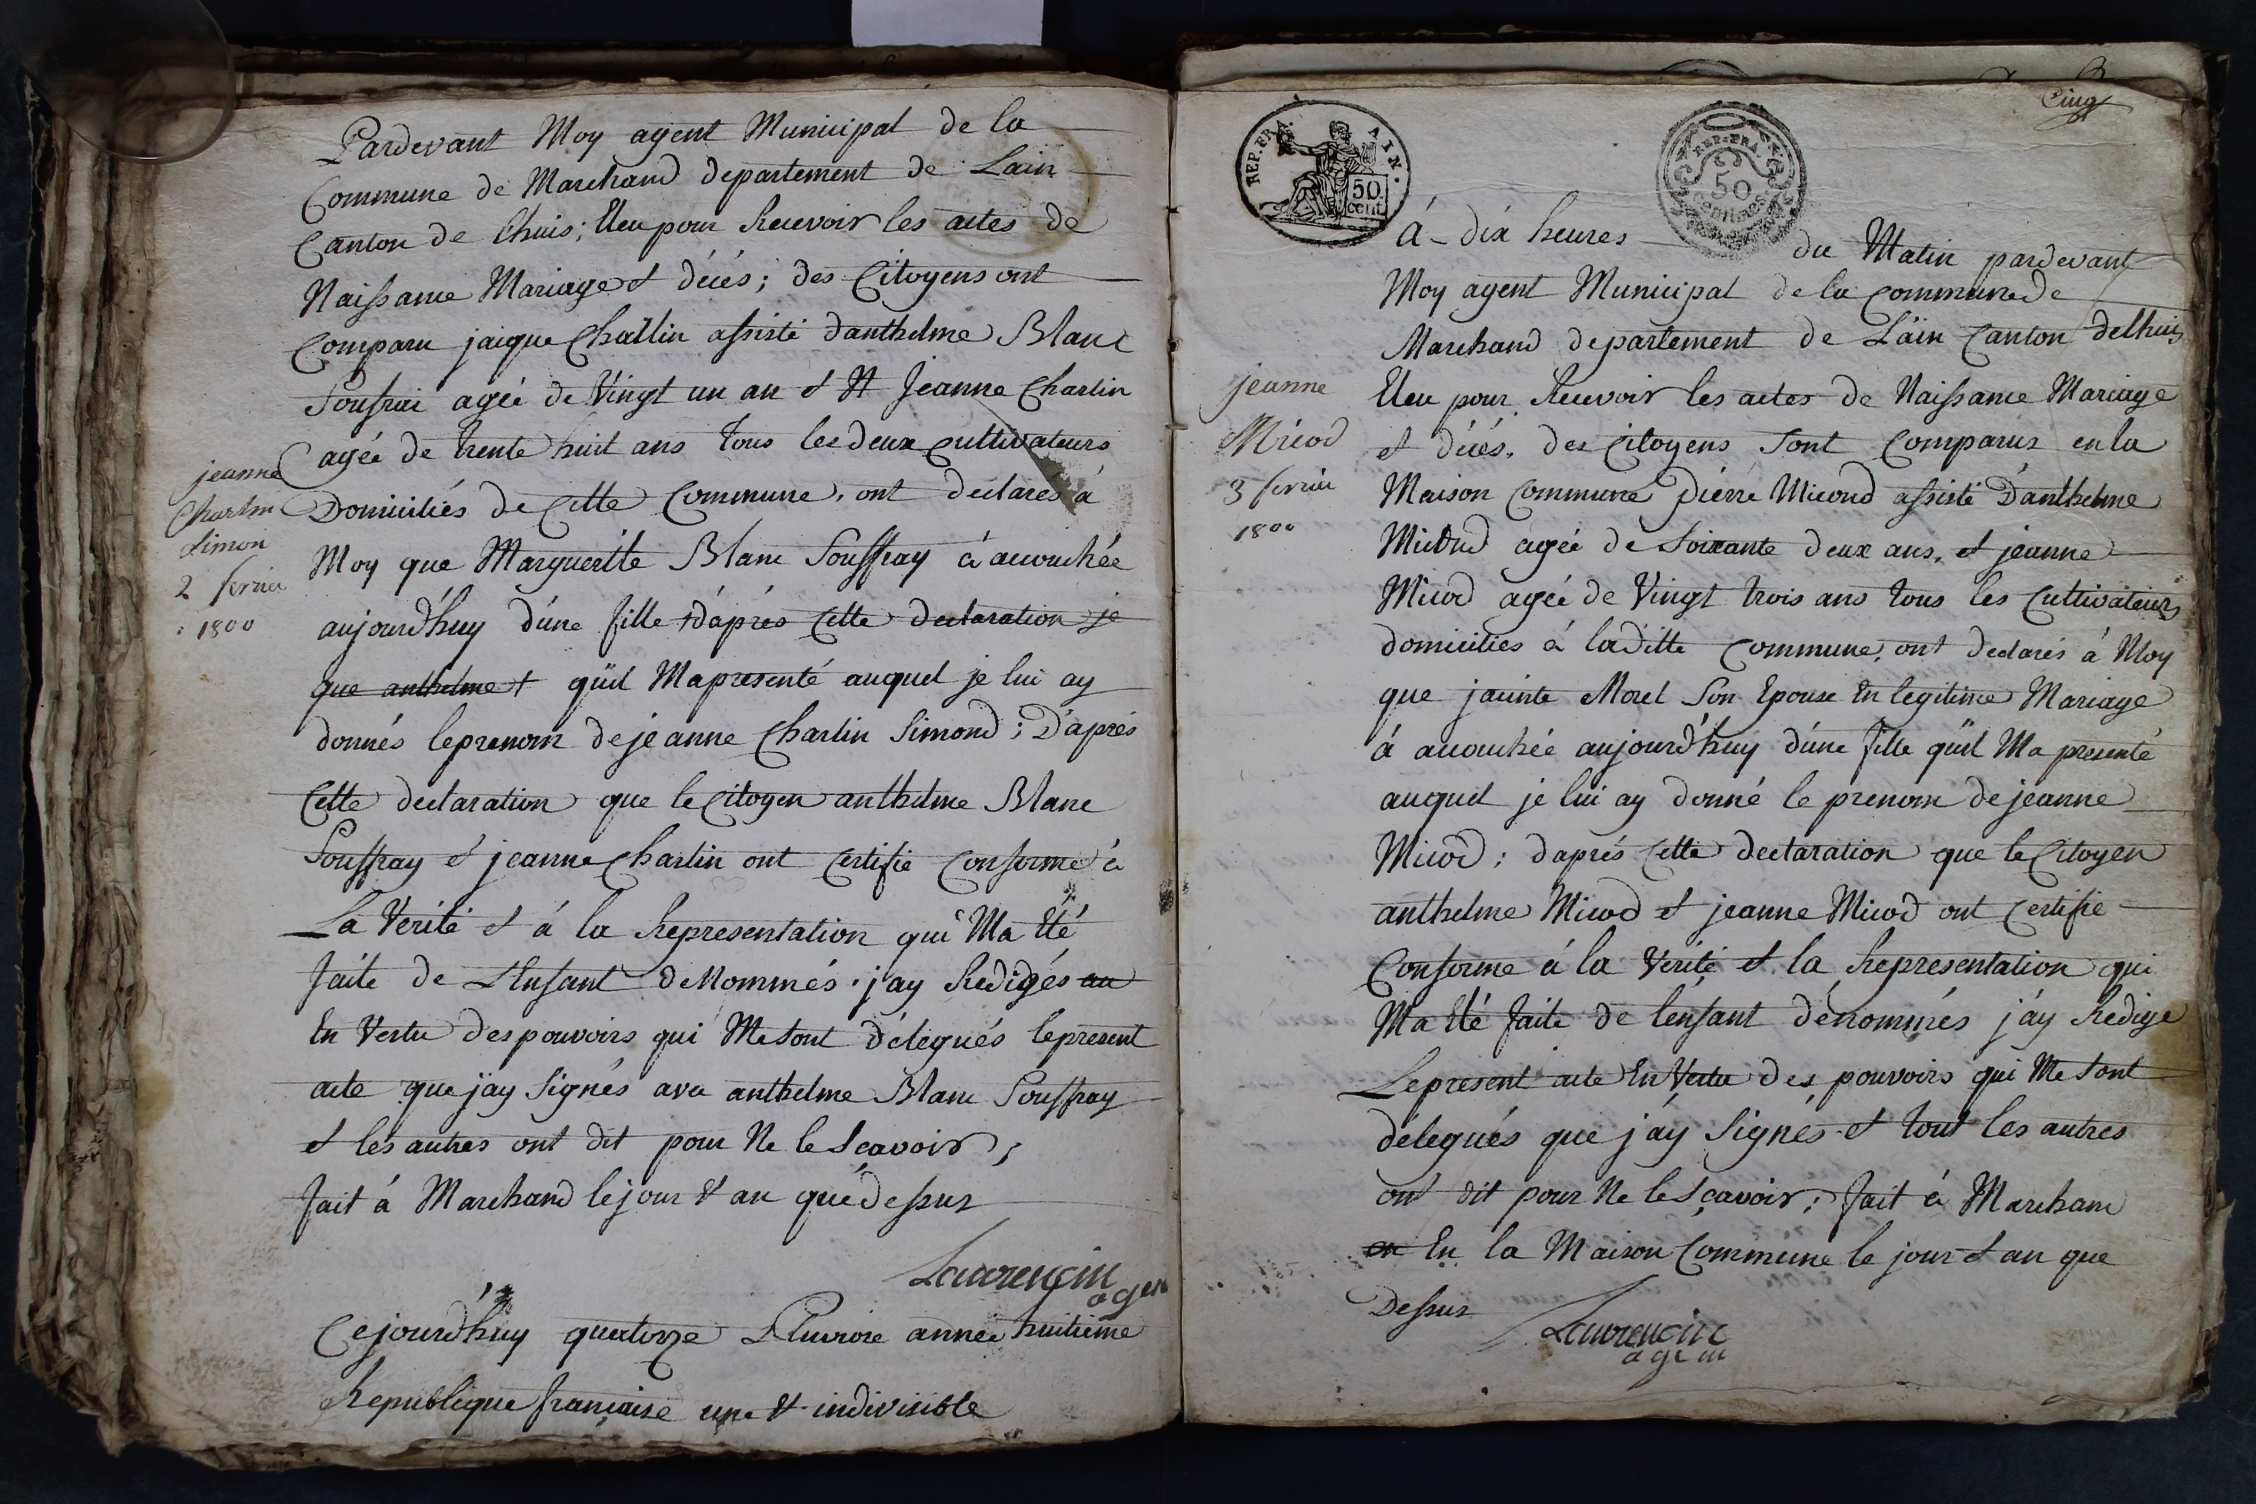 Pardevant Moy agent Municipal de la
Commune de Marchand departement de Lain
Canton de Lhuis; Eleu pour Recevoir les actes de
Naissance Mariage et décés; des Citoyens ont
Comparu jaique Charlin assisté danthelme Blanc
Soufrai agéé de Vingt un an et Jeanne Charlin
agéé de trente huit ans tous les deux cultivateurs
Domiciliés de Cette Commune, ont declarés á
Moy que Marguerite Blanc Souffray á accouchée
aujourd'huy d'úne fille + d'aprés Cette declaration je
que anthelme + qu'il Mapresenté auquel je lui ay
donnés leprenom de jeanne Charlin Simond; D'aprés
Cette declaration que le Citoyen anthelme Blanc
Souffray et jeanne Charlin ont Certifié Conforme á
La Verité et á la Representation qui Ma Eté
faite de L'Enfant deNommés j'ay Redigés au
En Vertu des pouvoirs qui Me sont délegués lepresent
acte que j'ay Signés avec anthelme Blanc Souffray
et les autres ont dit pour Ne le Sçavoir;
fait á Marchand lejour et an que dessus
Laurencin
agen
Cejourd'huy quatorze Pluviose année huitieme
Republique française une et indivisible
jeanne
Charlin
Simon
2 fevrier
1800
Cinq
REP. FRA.
AIN.
50
cent.
REP. FRA.
50
centimes
Á dix heures du Matin pardevant
Moy agent Municipal de la Commune de
Marchand departement de L'áin Canton delhuis
Eleu pour Recevoir les actes de Naissance Mariage
et décés, des Citoyens Sont Comparus en la
Maison Commune Piérre Micoud assisté D'anthelme
Micoud agéé de Soixante deux ans, et jeanne
Micod agéé de Vingt trois ans tous les Cultivateurs
domiciliés á laditte Commune, ont declarés á Moy
que jacinte Morel Son Epouse En legitime Mariage
á accouchée aujourd'huy d'úne fille qu'il Ma presenté
auquel je lui ay donné le prenom de jeanne
Micod; d'aprés Cette declaration que le Citoyen
anthelme Micod et jeanne Micod ont Certifié
Conforme á la Verité et la Representation qui
Ma Eté faite de l'énfant dénommés j'áy Redigé
Lepresent acte En Vertu des pouvoirs qui Me Sont
délegués que j'áy Signés et tout les autres
ont dit pour Ne le Sçavoir; fait á Marchand
en En la Maison Commune le jour et an que
Dessus
Laurencin
agen
jeanne
Micod
3 fevrier
1800